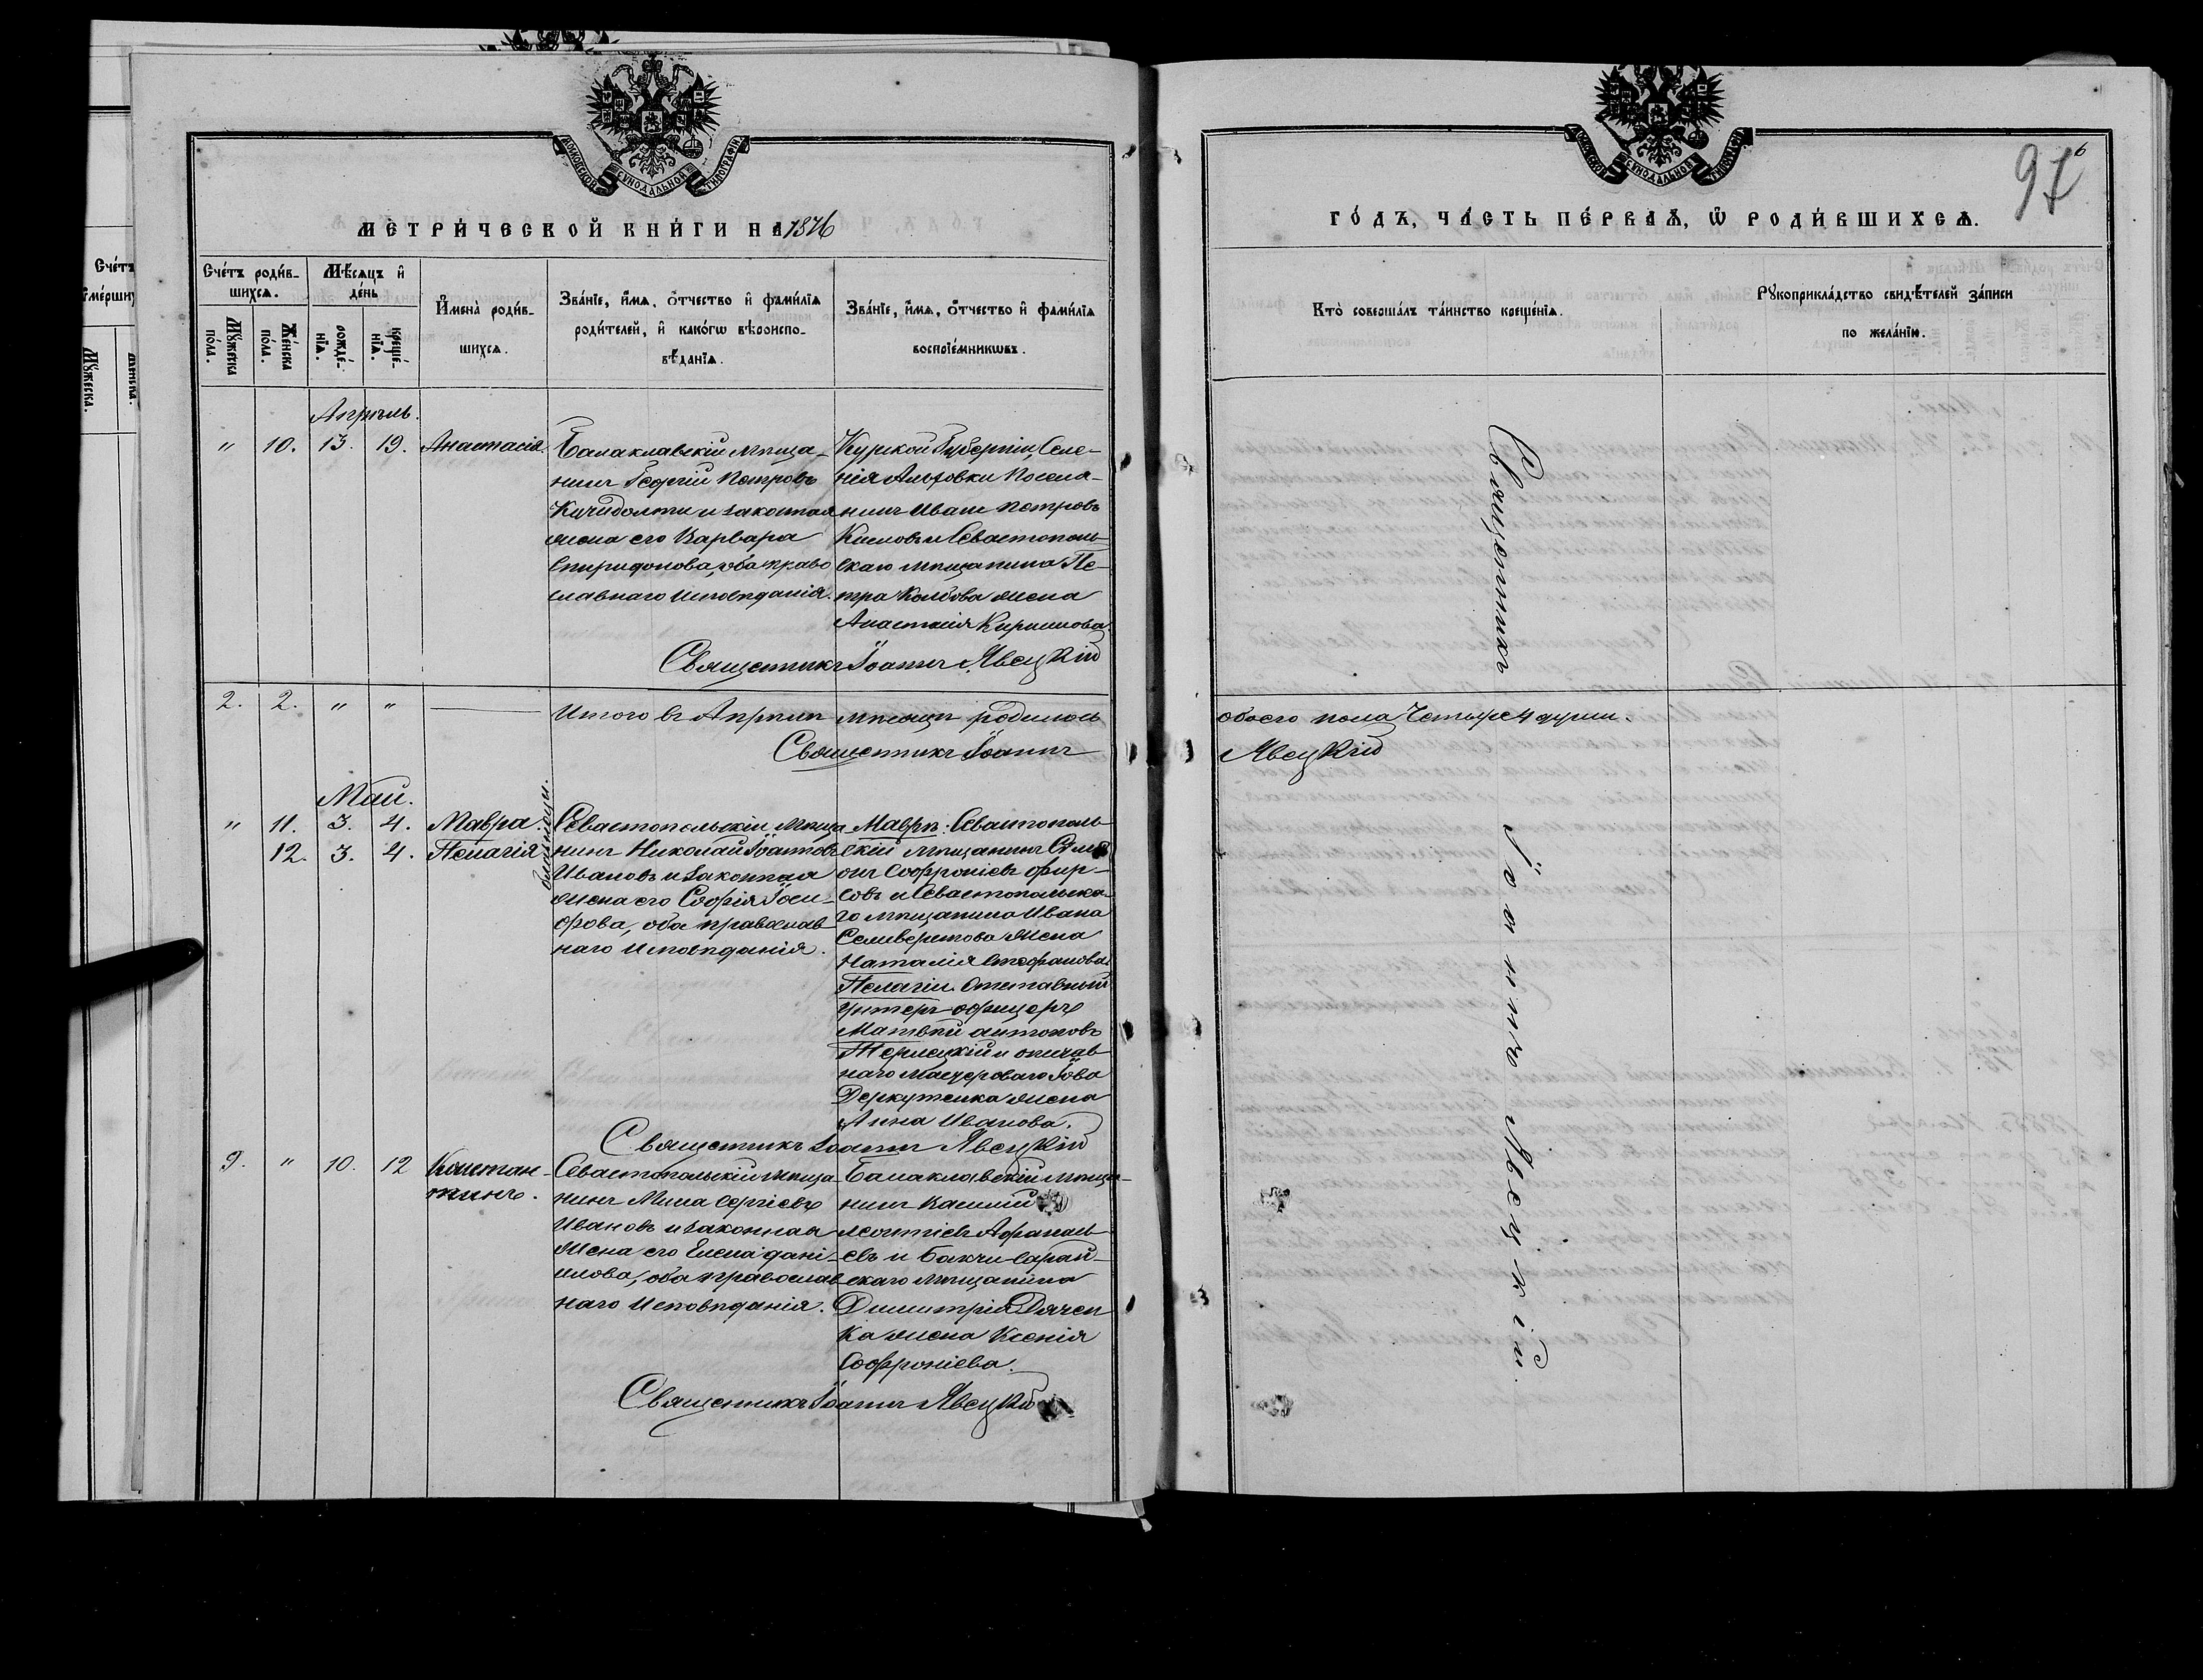 МОСКОВСКОЙ СѴНОДАЛЬНОЙ ТИПОГРАФІИ
МЕТРИ́ЧЕСКОЙ КНИ́ГИ НА 1876
Сче́тъ роди́в-
шихсѧ.
Мꙋ́жеска по́ла.
Же́нска по́ла.
Мѣ́сяцъ и҆ де́нь
рожде́-нїѧ.
креще́-нїѧ.
И҆мена̀ роди́в-
шихсѧ.
Зва́нїе, и҆́мѧ, ѻ҆́тчество и҆ фами́лїѧ
роди́телей, и҆ како́гѡ вѣроиспо-
вѣ́данїѧ.
Зва́нїе, и҆́мѧ, ѻ҆́тчество и҆ фами́лїѧ
воспрїе́мникѡвъ.
Апрѣль.
" 10. 13. 19. Анастасія.
Балаклавскій мѣща-
нинъ Георгій Петровъ
и законная
жена его Варвара
Спиридонова, оба право
славнаго исповѣданія.
Курской Губерніи, Селе-
нія Поселя-
нинъ Иванъ Петровъ
и Севастополь-
скаго мѣщанина Пе-
тра жена
Анастасія
Священникъ Іоаннъ Явецкій
2. 2. " "
Итого въ Апрѣлѣ мѣсяцѣ родилось
Священникъ Іоаннъ
Май.
" 11. 3. 4. Мавра.
12. 3. 4. Пелагія
близнецы.
Севастопольскій мѣща
нинъ Николай Іоанновъ
Ивановъ и законная
жена его Софія Іоси-
фова, оба православ
наго исповѣданія.
Маврѣ: Севастополь-
скій мѣщанинъ Сѵме
онъ Софроніевъ Фир-
совъ и Севастопольска-
го мѣщанина Ивана
Селиверстова жена
Наталія Стефанова.
Пелагіи. Отставный
Унтеръ-офицеръ
Матвѣй Антоновъ
Терлецкій и отстав-
наго мастероваго Іова
Деркутенка жена
Анна Иванова.
Священникъ Іоаннъ Явецкій
9. " 10. 12 Констан-
тинъ.
Севастопольскій мѣща-
нинъ Миха Сергіевъ
Ивановъ и законная
жена его Елена Дані-
илова, оба православ
наго исповѣданія.
Балаклавскій мѣща-
нинъ Василій
Леонтіевъ Афанась-
евъ и Бакчи-сарай-
скаго мѣщанина
Димитрія Дячен
ка жена Ксенія
Софроніева.
Священникъ Іоаннъ Явецкій
МОСКОВСКОЙ СѴНОДАЛЬНОЙ ТИПОГРАФІИ
97
ГО́ДЪ, ЧА́СТЬ ПЕ́РВАѦ, Ѡ҆ РОДИ́ВШИХСѦ.
Кто̀ соверша́лъ та́инство креще́нїѧ.
Рꙋкоприкла́дство свидѣ́телей за́писи
по жела́нїю.
обоего пола Четыре 4 души.
Явецкій
Священникъ Іоаннъ Явецкій.